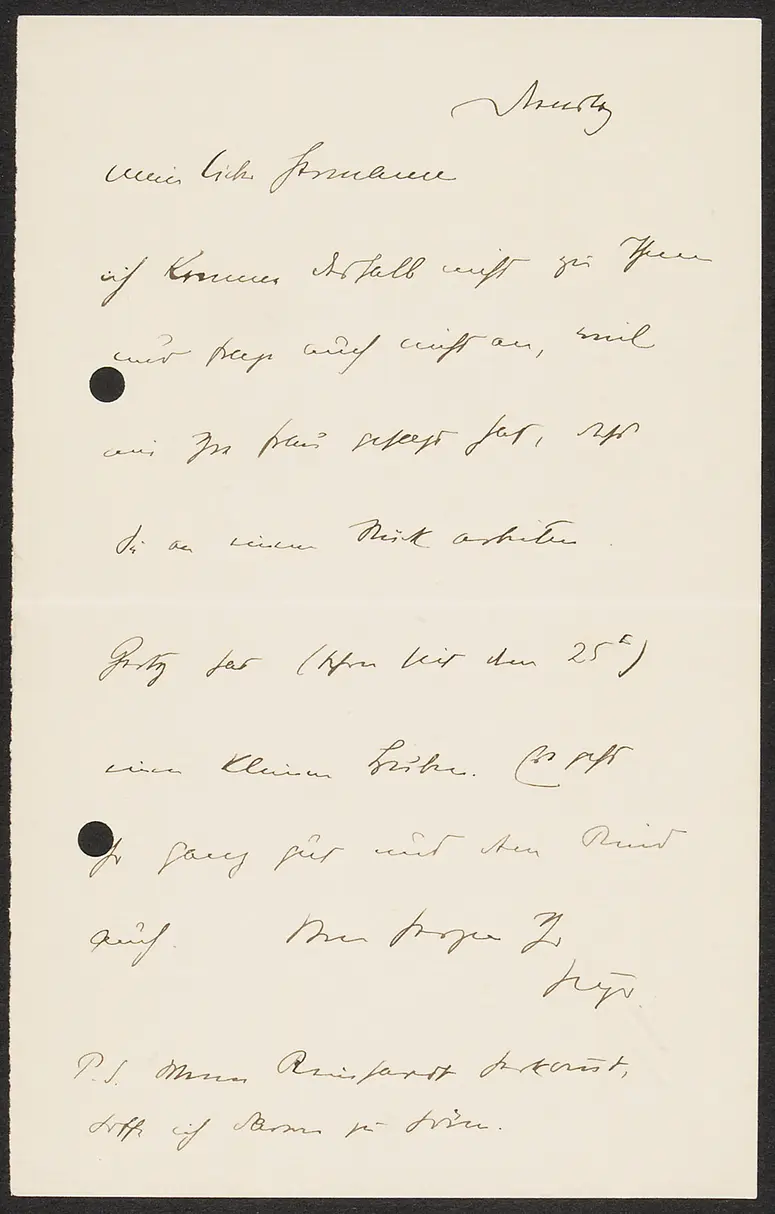 Dienstag
mein lieber Hermann
ich komme deshalb nicht zu Ihnen
und frage auch nicht an, weil
mir Ihre Frau gesagt hat, dass
Sie an einem Stück arbeiten.
hat (schon seit dem 25t)
einen kleinen Buben. Es geht
ihr ganz gut und dem Kind
auch. Von Herzen Ihr
P.S. Wenn Reinhardt herkommt,
hoffe ich davon zu hören.